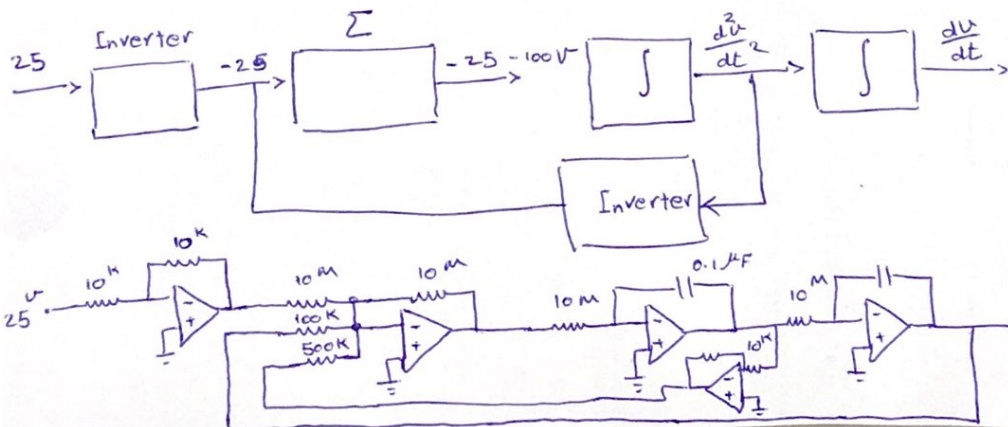 Σ
Inverter
25
-25
-25 -100 V
∫
d²v/dt²
∫
dv/dt
Inverter
10K
10K
25 v
10M
10M
100K
500K
10M
0.1 μF
10K
10M
-
+
-
+
-
+
-
+
-
+